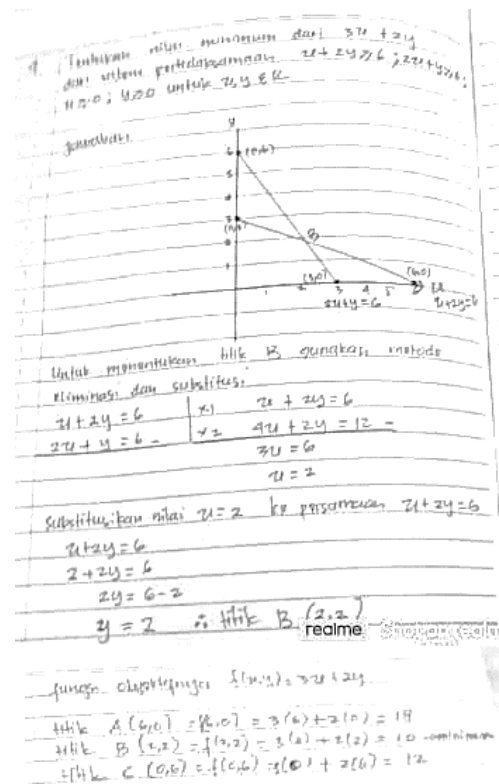 Tentukan nilai minimum dari 3x + 2y
dari sistem pertidaksamaan x + 2y ≥ 6 ; 2x + y ≥ 6 ;
x ≥ 0 ; y ≥ 0 untuk x, y ∈ R
Jawaban
y
6 (0,6)
5
4
3
2
1
B
(3,0) (6,0)
1 2 3 4 5
2x+y=6 x+2y=6
Untuk menentukan titik B gunakan metode
eliminasi dan substitusi
x + 2y = 6 | x1 x + 2y = 6
2x + y = 6 - | x2 4x + 2y = 12 -
3x = 6
x = 2
substitusikan nilai x = 2 ke persamaan x + 2y = 6
x + 2y = 6
2 + 2y = 6
2y = 6 - 2
y = 2 ∴ titik B (2,2)
realme
fungsi objektifnya f(x,y) = 3x + 2y
titik A (6,0) = f(6,0) = 3(6) + 2(0) = 18
titik B (2,2) = f(2,2) = 3(2) + 2(2) = 10 minimum
titik C (0,6) = f(0,6) = 3(0) + 2(6) = 12